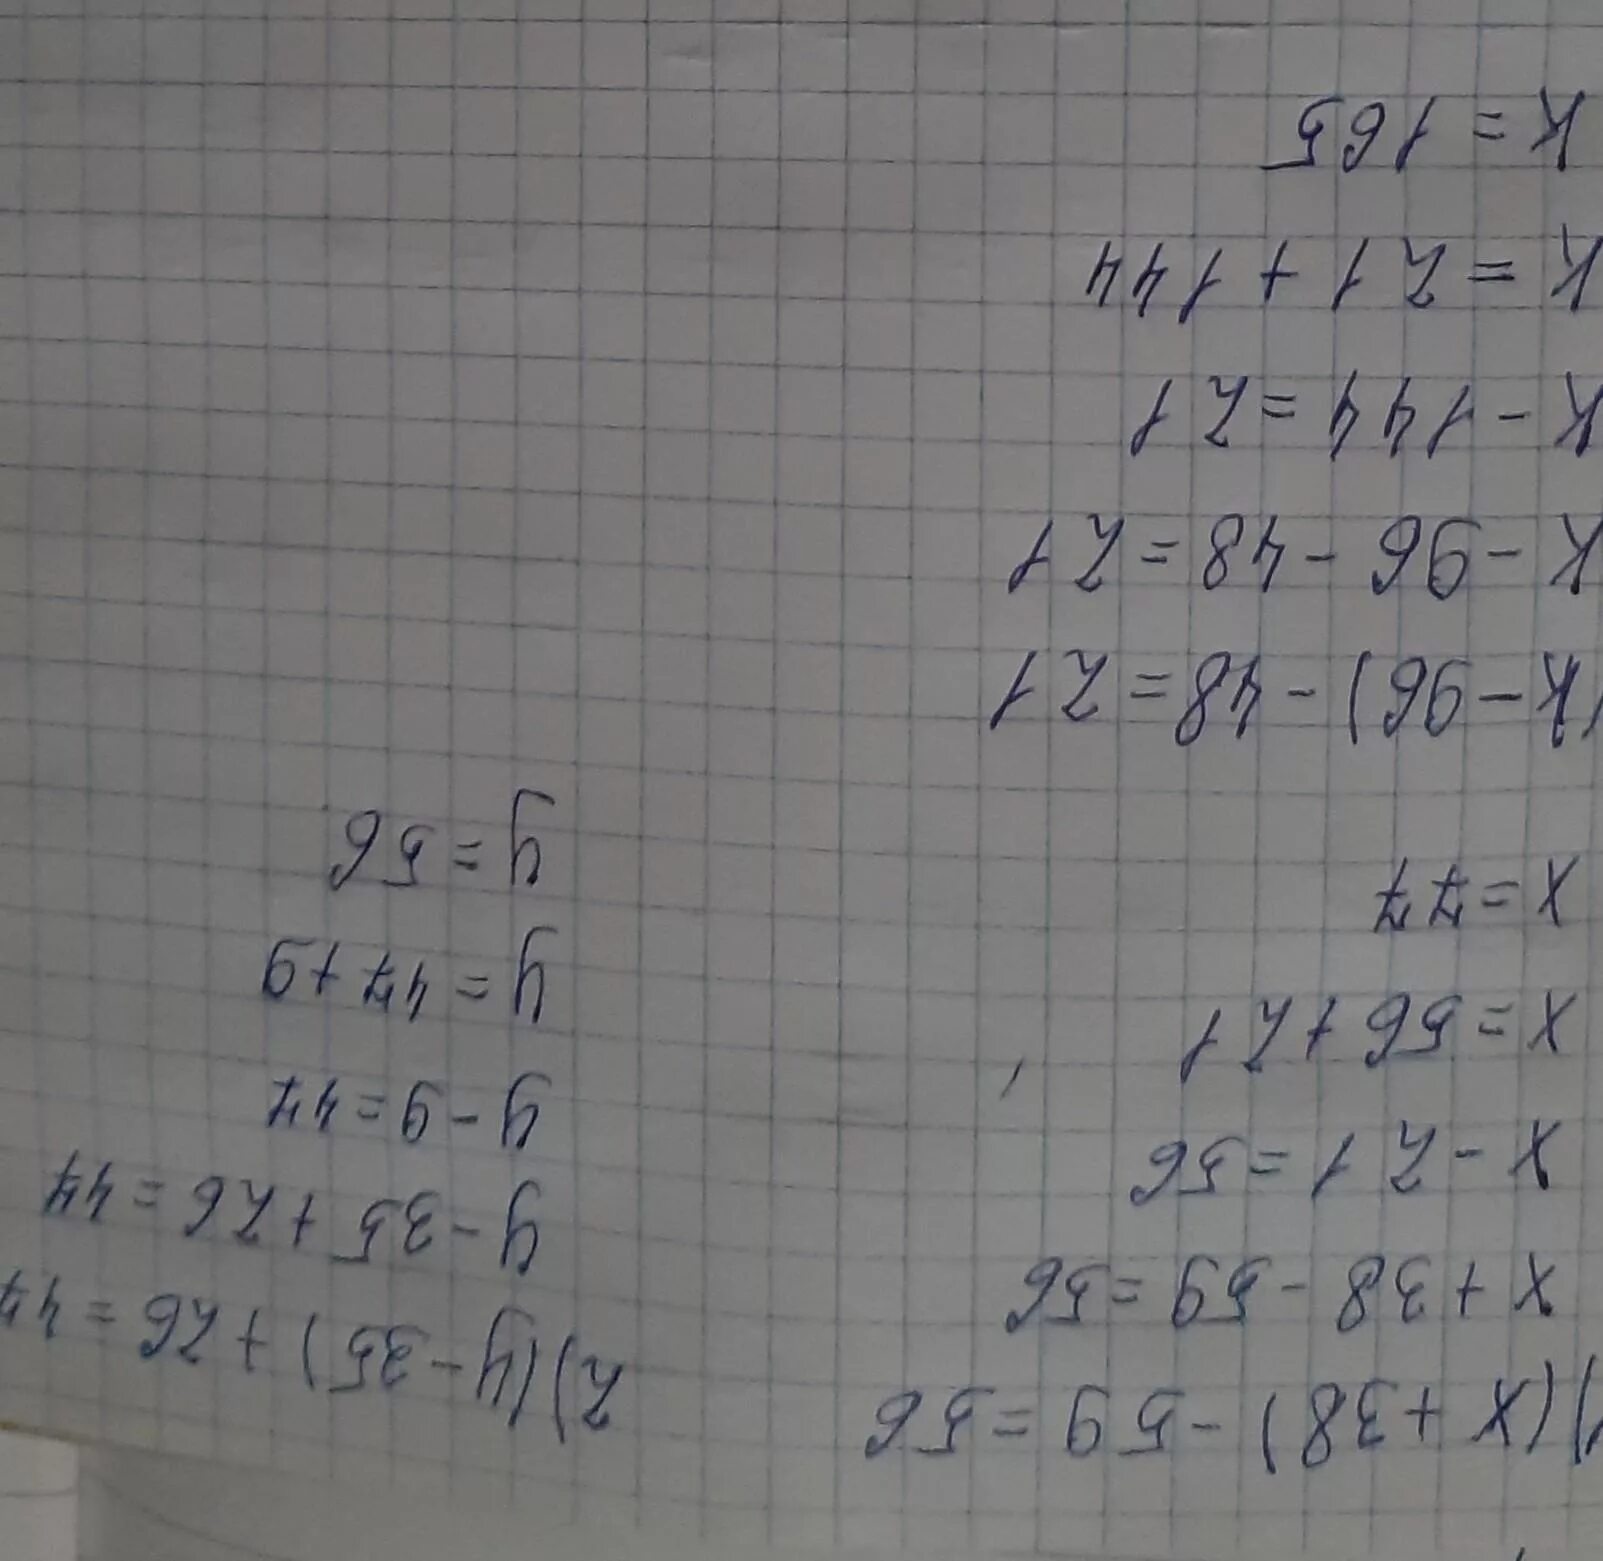 1)(x+38)-59=56
x+38-59=56
x-21=56
x=56+21
x=77
2)(y-35)+26=47
y-35+26=47
y-9=47
y=47+9
y=56
(k-96)-48=21
k-96-48=21
k-144=21
k=21+144
k=165